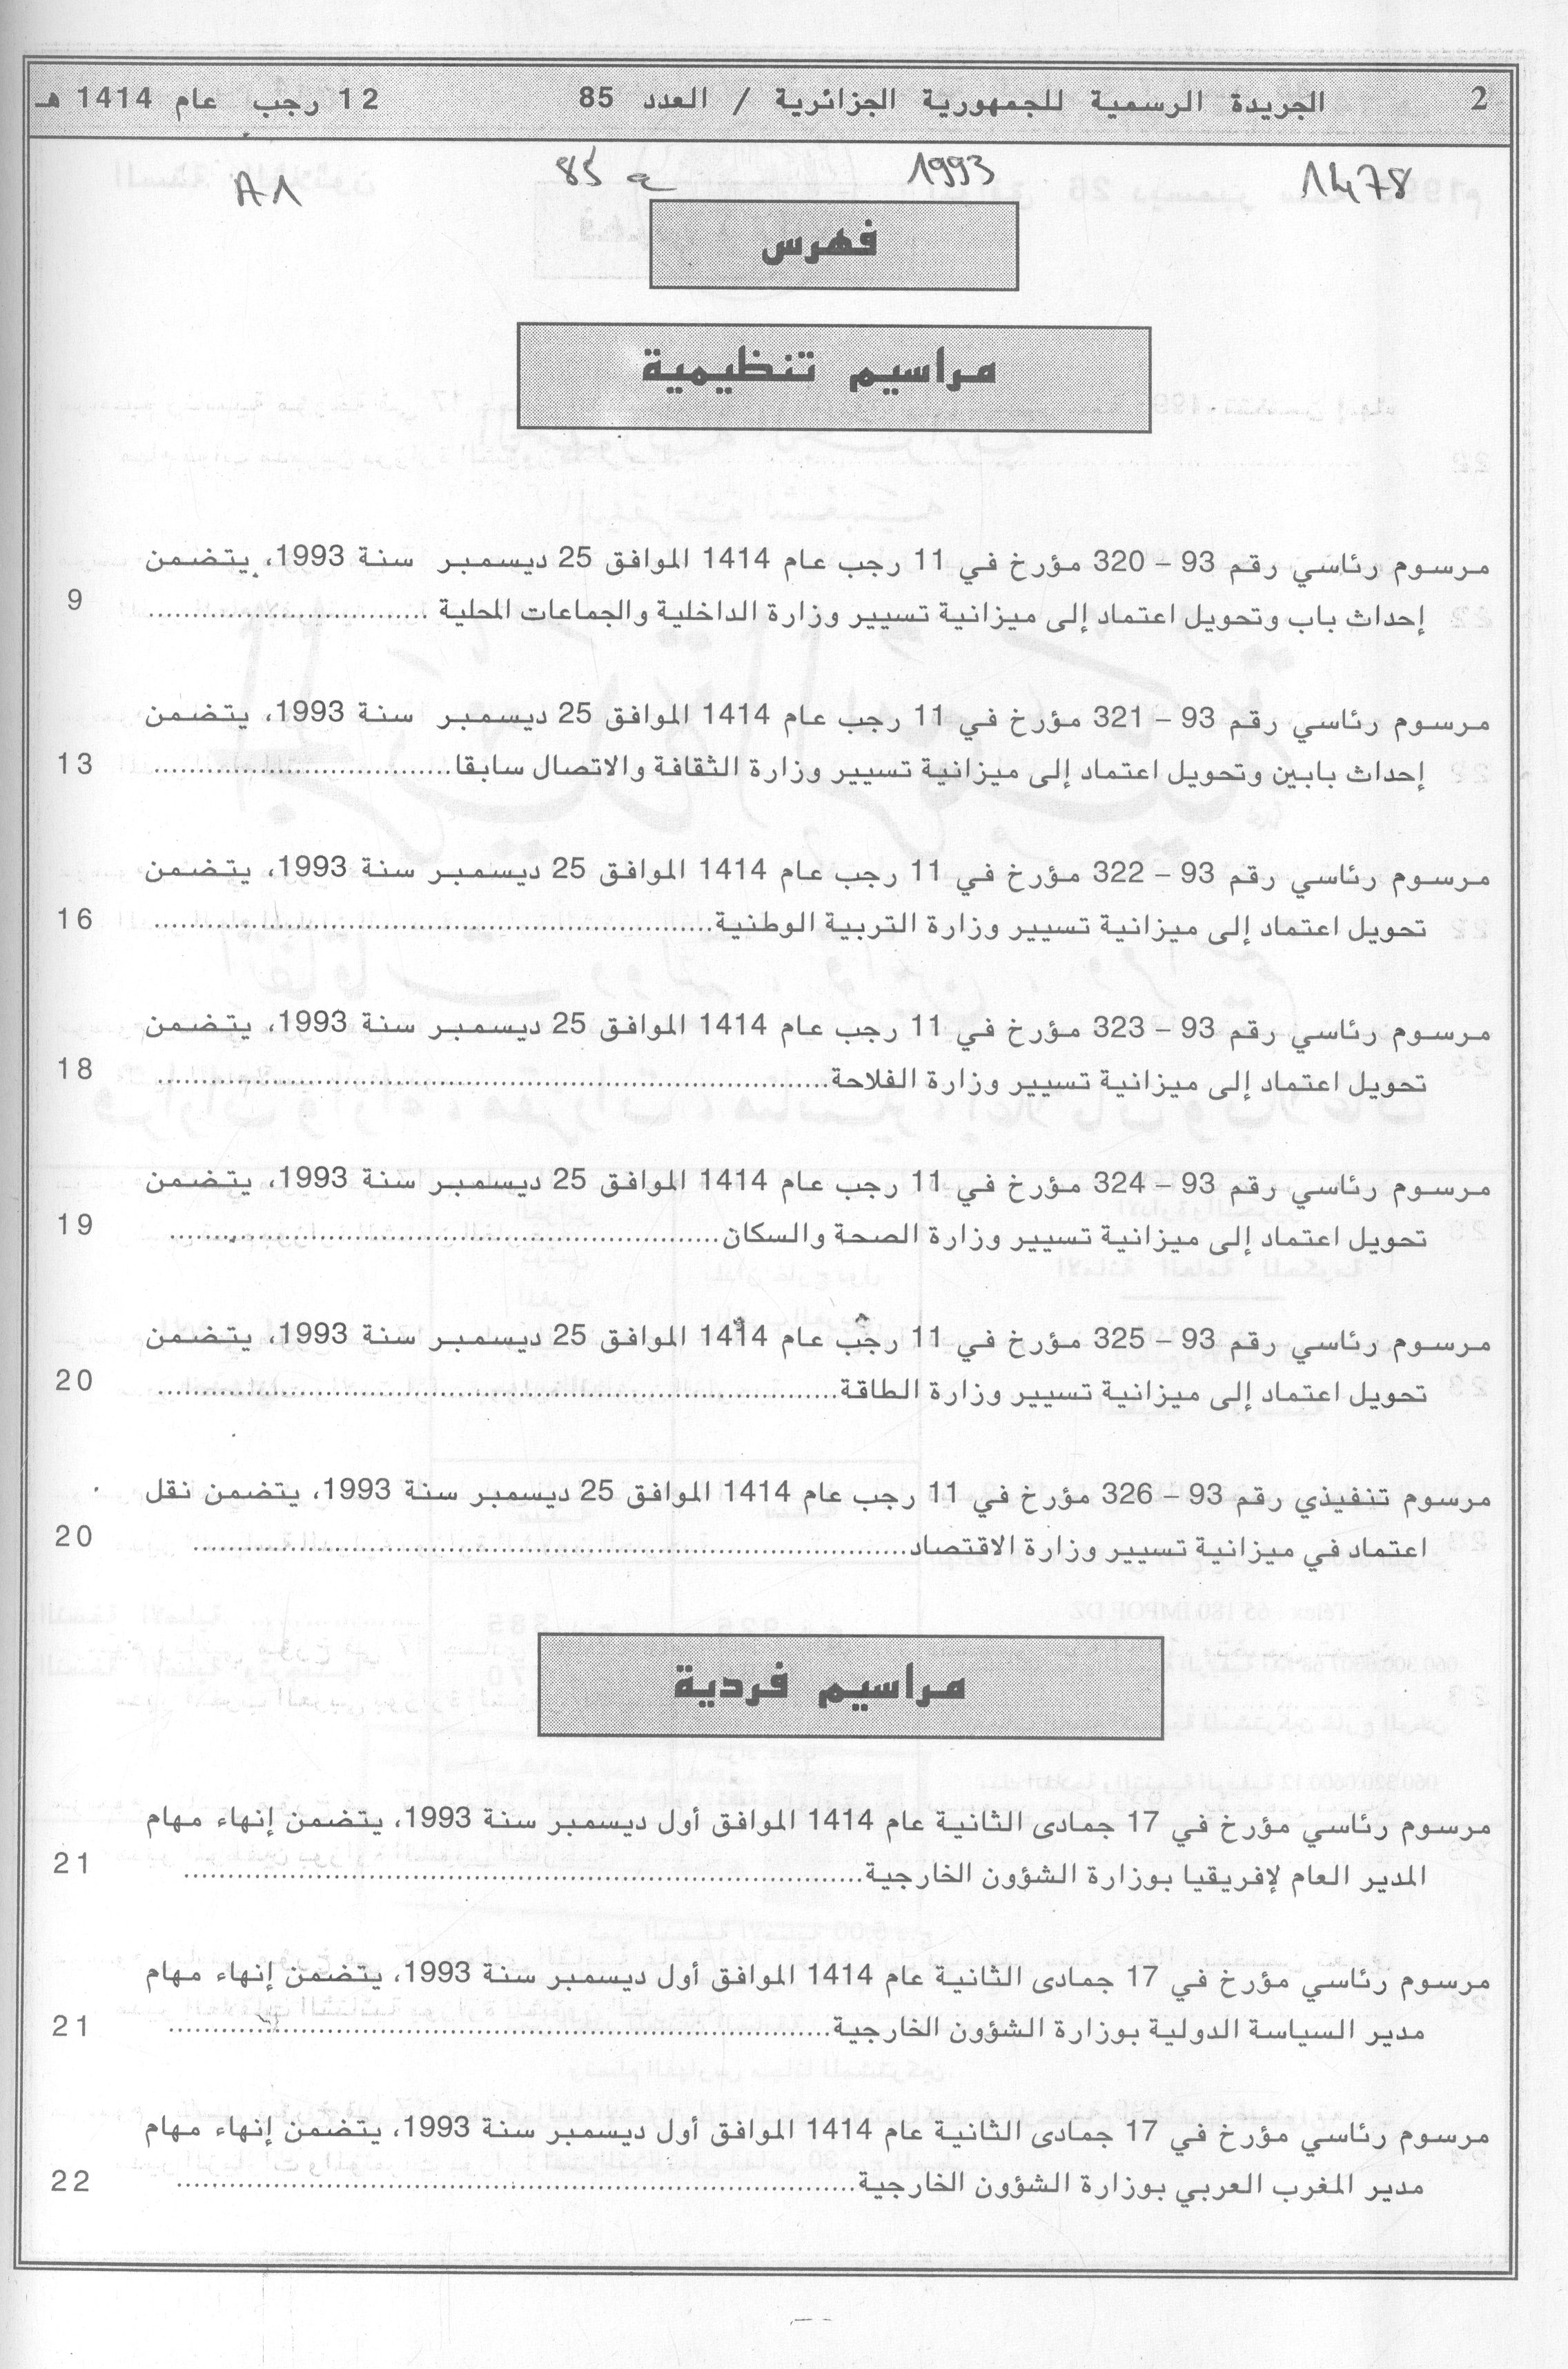 2 الجريدة الرسمية للجمهورية الجزائرية / العدد 85 12 رجب عام 1414 هـ
1478 1993 85 ع A1
فهرس
مراسيم تنظيمية
مرسوم رئاسي رقم 93 – 320 مؤرخ في 11 رجب عام 1414 الموافق 25 ديسمبر سنة 1993، يتضمن
إحداث باب وتحويل اعتماد إلى ميزانية تسيير وزارة الداخلية والجماعات المحلية .............................. 9
مرسوم رئاسي رقم 93 – 321 مؤرخ في 11 رجب عام 1414 الموافق 25 ديسمبر سنة 1993، يتضمن
إحداث بابين وتحويل اعتماد إلى ميزانية تسيير وزارة الثقافة والاتصال سابقا.............................. 13
مرسوم رئاسي رقم 93 – 322 مؤرخ في 11 رجب عام 1414 الموافق 25 ديسمبر سنة 1993، يتضمن
تحويل اعتماد إلى ميزانية تسيير وزارة التربية الوطنية.............................. 16
مرسوم رئاسي رقم 93 – 323 مؤرخ في 11 رجب عام 1414 الموافق 25 ديسمبر سنة 1993، يتضمن
تحويل اعتماد إلى ميزانية تسيير وزارة الفلاحة.............................. 18
مرسوم رئاسي رقم 93 – 324 مؤرخ في 11 رجب عام 1414 الموافق 25 ديسمبر سنة 1993، يتضمن
تحويل اعتماد إلى ميزانية تسيير وزارة الصحة والسكان.............................. 19
مرسوم رئاسي رقم 93 – 325 مؤرخ في 11 رجب عام 1414 الموافق 25 ديسمبر سنة 1993، يتضمن
تحويل اعتماد إلى ميزانية تسيير وزارة الطاقة.............................. 20
مرسوم تنفيذي رقم 93 – 326 مؤرخ في 11 رجب عام 1414 الموافق 25 ديسمبر سنة 1993، يتضمن نقل
اعتماد في ميزانية تسيير وزارة الاقتصاد.............................. 20
مراسيم فردية
مرسوم رئاسي مؤرخ في 17 جمادى الثانية عام 1414 الموافق أول ديسمبر سنة 1993، يتضمن إنهاء مهام
المدير العام لإفريقيا بوزارة الشؤون الخارجية.............................. 21
مرسوم رئاسي مؤرخ في 17 جمادى الثانية عام 1414 الموافق أول ديسمبر سنة 1993، يتضمن إنهاء مهام
مدير السياسة الدولية بوزارة الشؤون الخارجية.............................. 21
مرسوم رئاسي مؤرخ في 17 جمادى الثانية عام 1414 الموافق أول ديسمبر سنة 1993، يتضمن إنهاء مهام
مدير المغرب العربي بوزارة الشؤون الخارجية.............................. 22